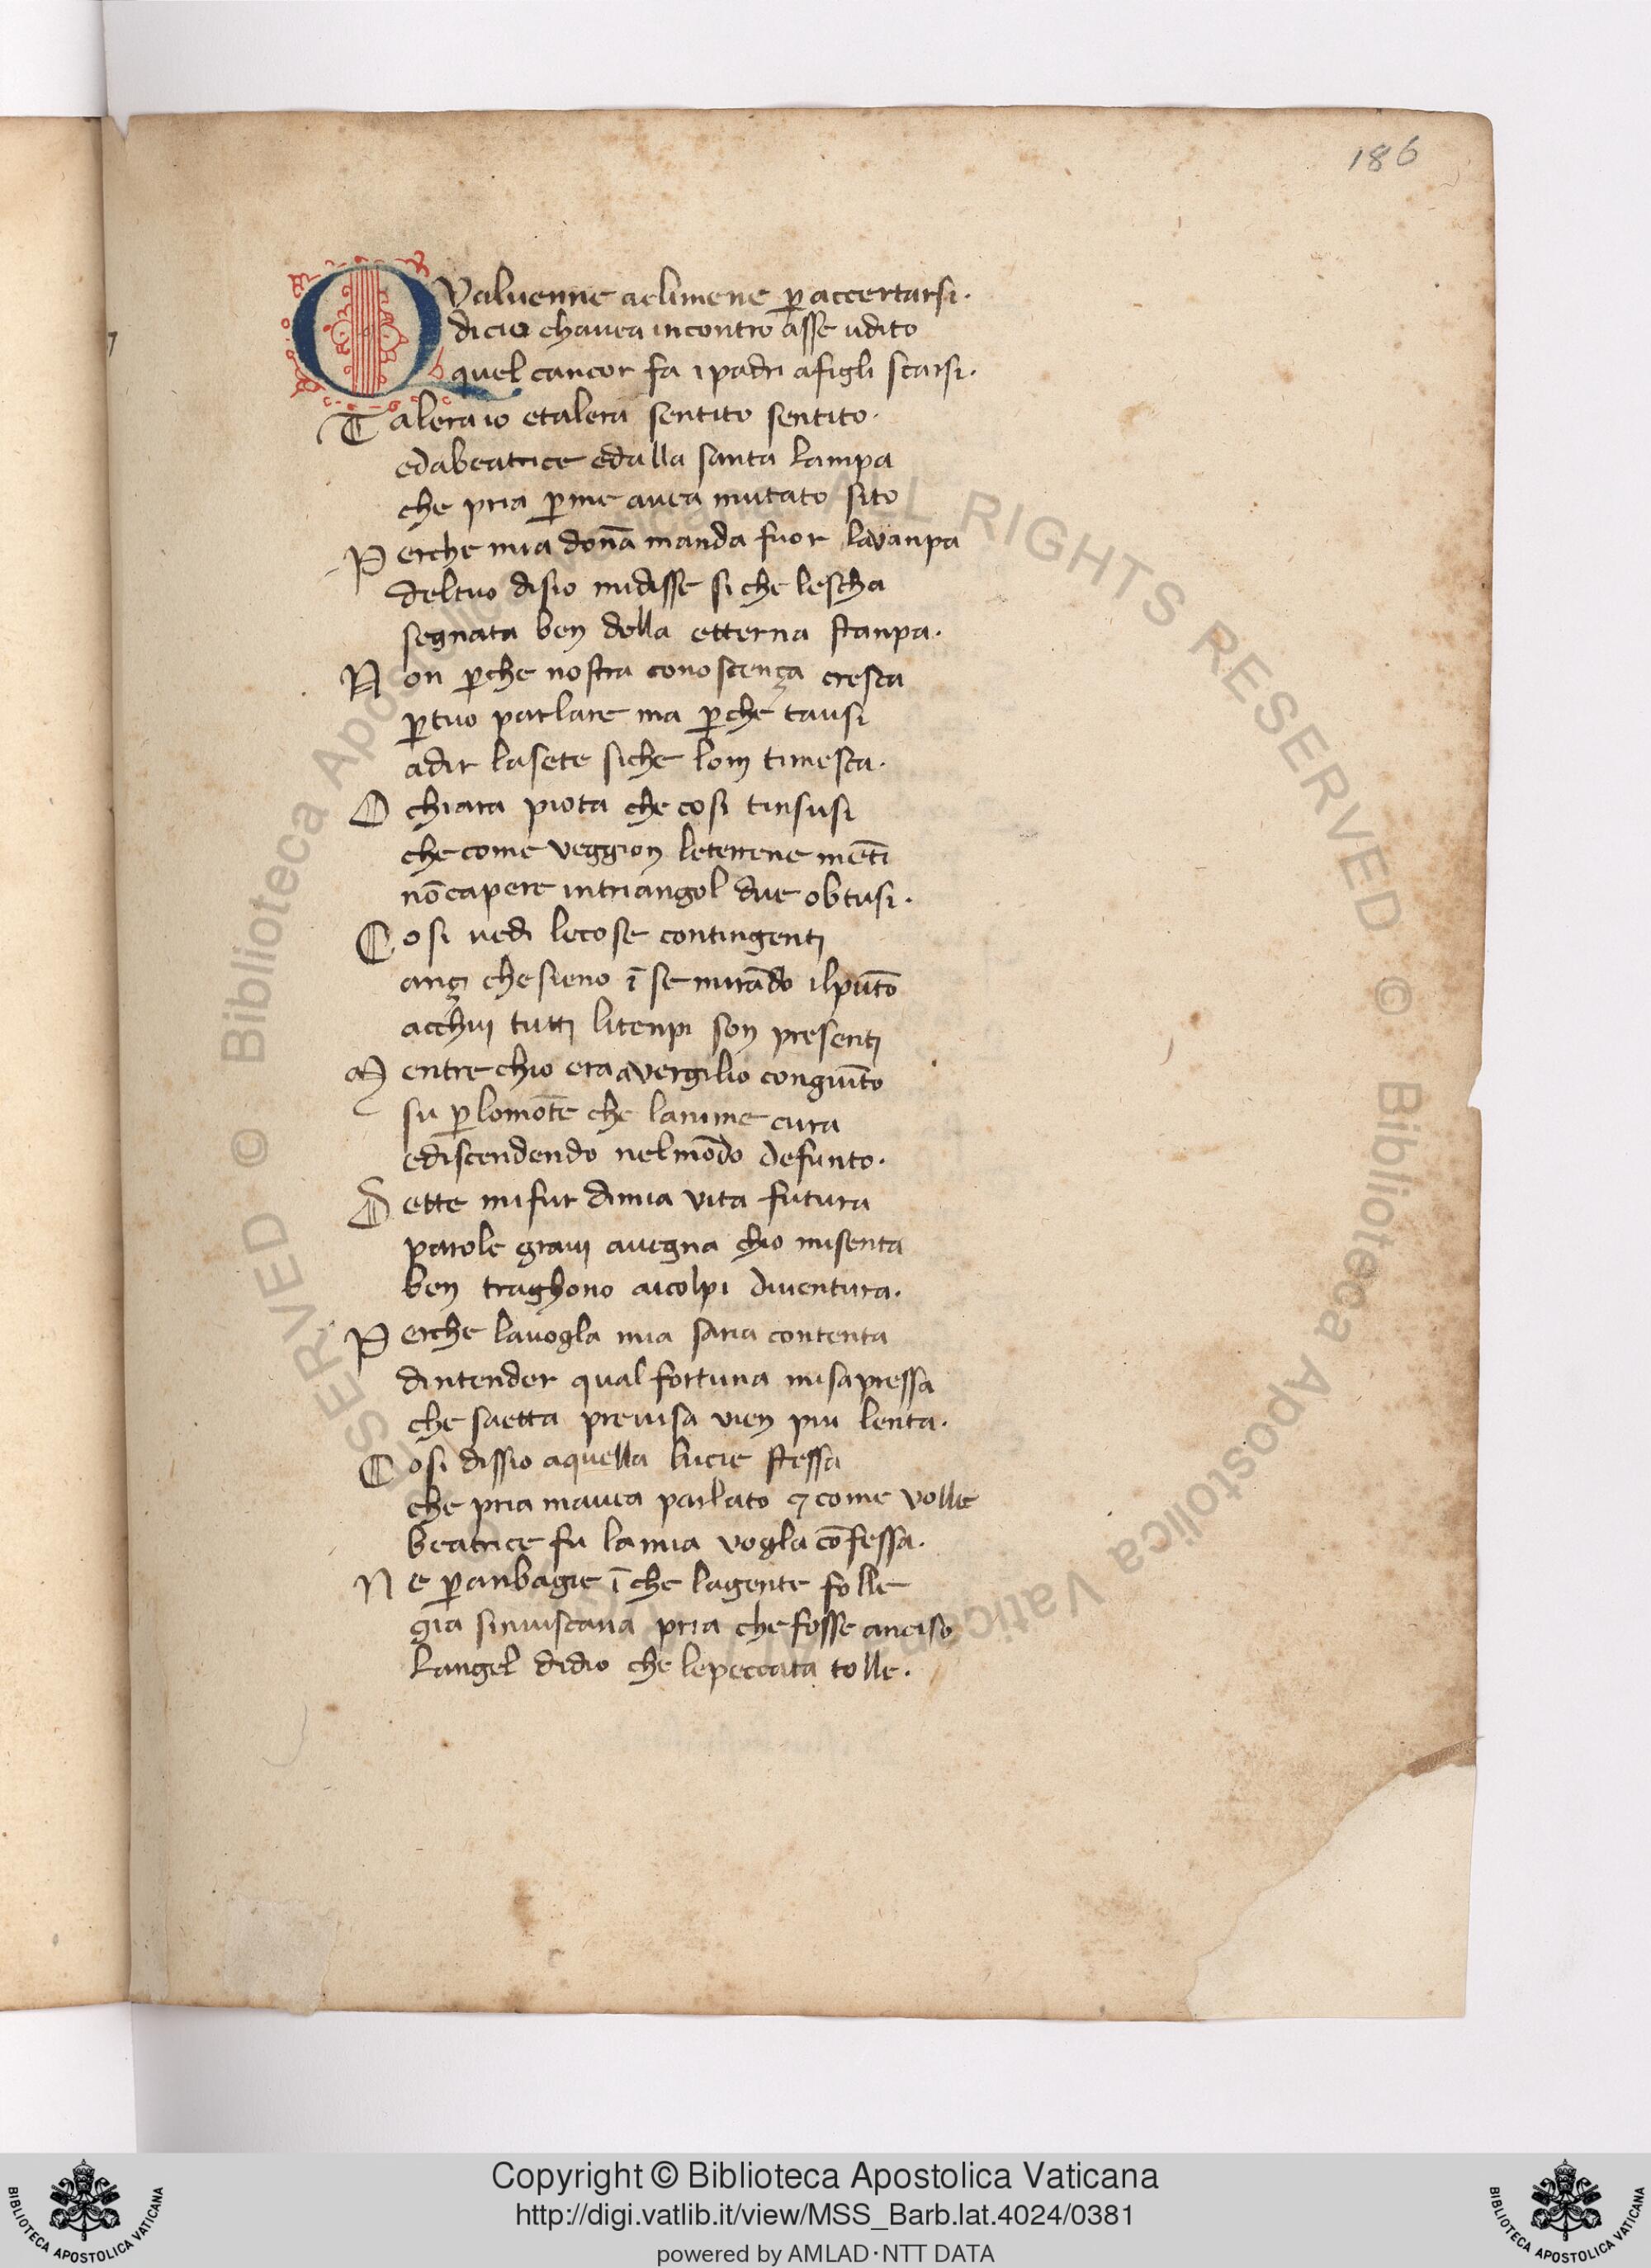 186
QValuenne aclimene ꝑ accertarsi.
dicio chauea incontro asse udito
quel cancor fa i padri afigli scarsi.
Talera io etalera sentito sentito.
edabeatrice edalla santa lampa
che pria ꝑme auea mutato sito
Perche mia don̄a manda fuor lavanpa
deltuo disio midisse si che lescha
segnata ben della etterna stanpa.
Non ꝑche nostra conoscença cresca
ꝑtuo parlare ma ꝑche tausi
adir lasete siche lom timesca.
O chiara piota che cosi tinsusi
che come veggion leterrene mēti
nōcapere intriangol due obtusi.
Cosi uedi lecose contingenti
ançi chesieno ī se mirādo ilpūto
acchui tutti litenpi son presenti
Mentre chio era avergilio congiūto
su ꝑlomōte che lanime cura
ediscendendo nelmōdo defunto.
Dette mifur dimia vita futura
parole graui auegna chio misenta
ben traghono aicolpi diuentura.
Perche lauogla mia saria contenta
dintender qual fortuna misapressa
che saetta preuisa vien piu lenta.
Cosi dissio aquella lucie stessa
che pria mauea parlato ⁊ come volle
beatrice fu lamia vogla cōfessa.
Ne ꝑanbagie ī che lagente folle
gia sinuiscaua pria chefosse anciso
langel didio che lepeccata tolle.
Copyright © Biblioteca Apostolica Vaticana
http://digi.vatlib.it/view/MSS_Barb.lat.4024/0381
powered by AMLAD·NTT DATA
BIBLIOTECA APOSTOLICA VATICANA
BIBLIOTECA APOSTOLICA VATICANA
© Biblioteca Apostolica Vaticana ALL RIGHTS RESERVED © Biblioteca Apostolica Vaticana ALL RIGHTS RESERVED